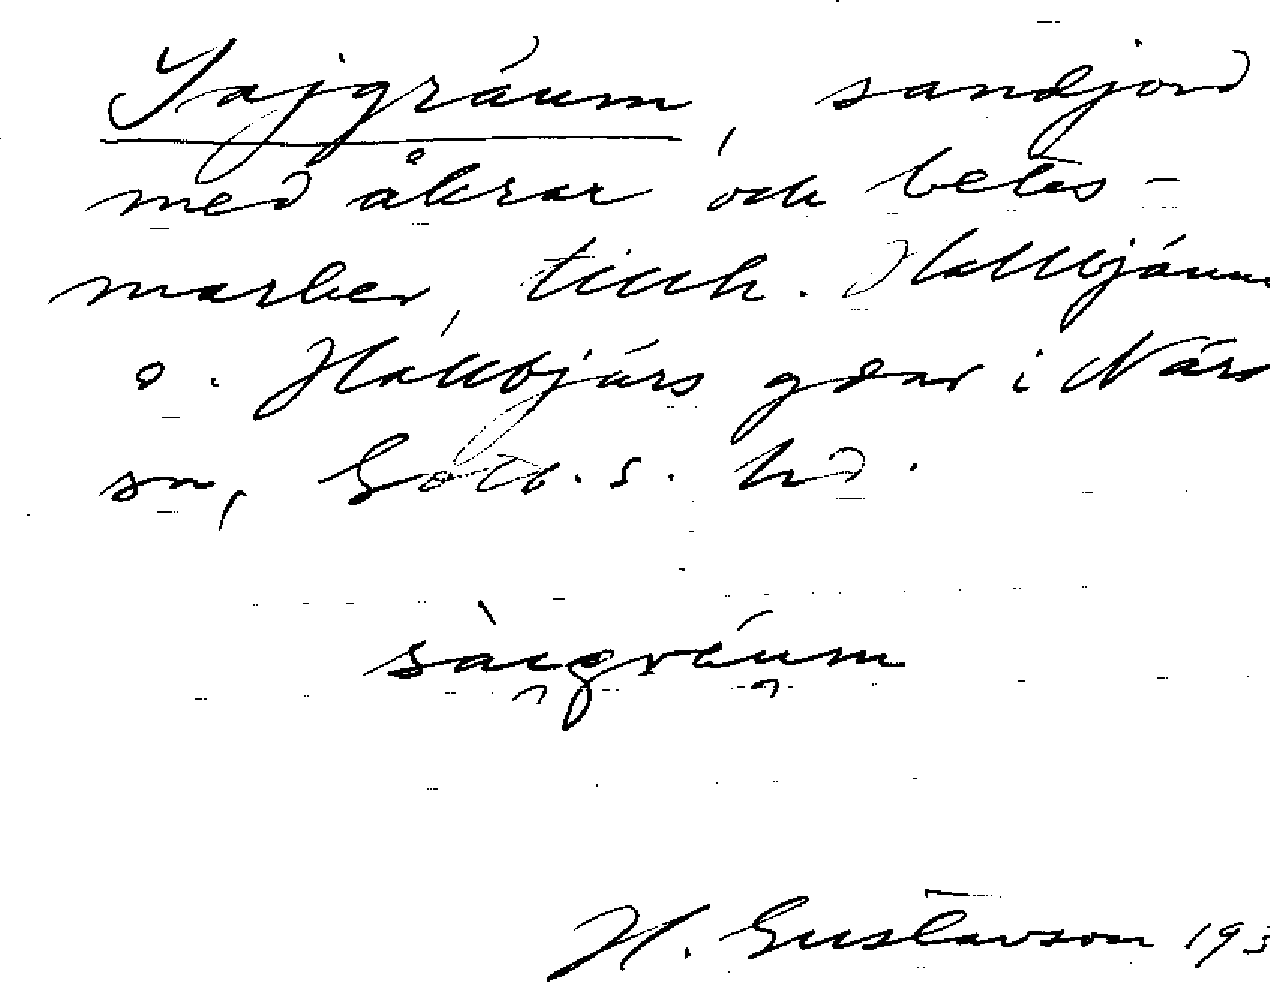 Sajgräum, sandjord
med åkrar och betes-
marker, tillh. Hallbjänne
o. Hallbjärs gdar i När
sn, Gotl. s. hd.
sàigräum
H. Gustavson 193